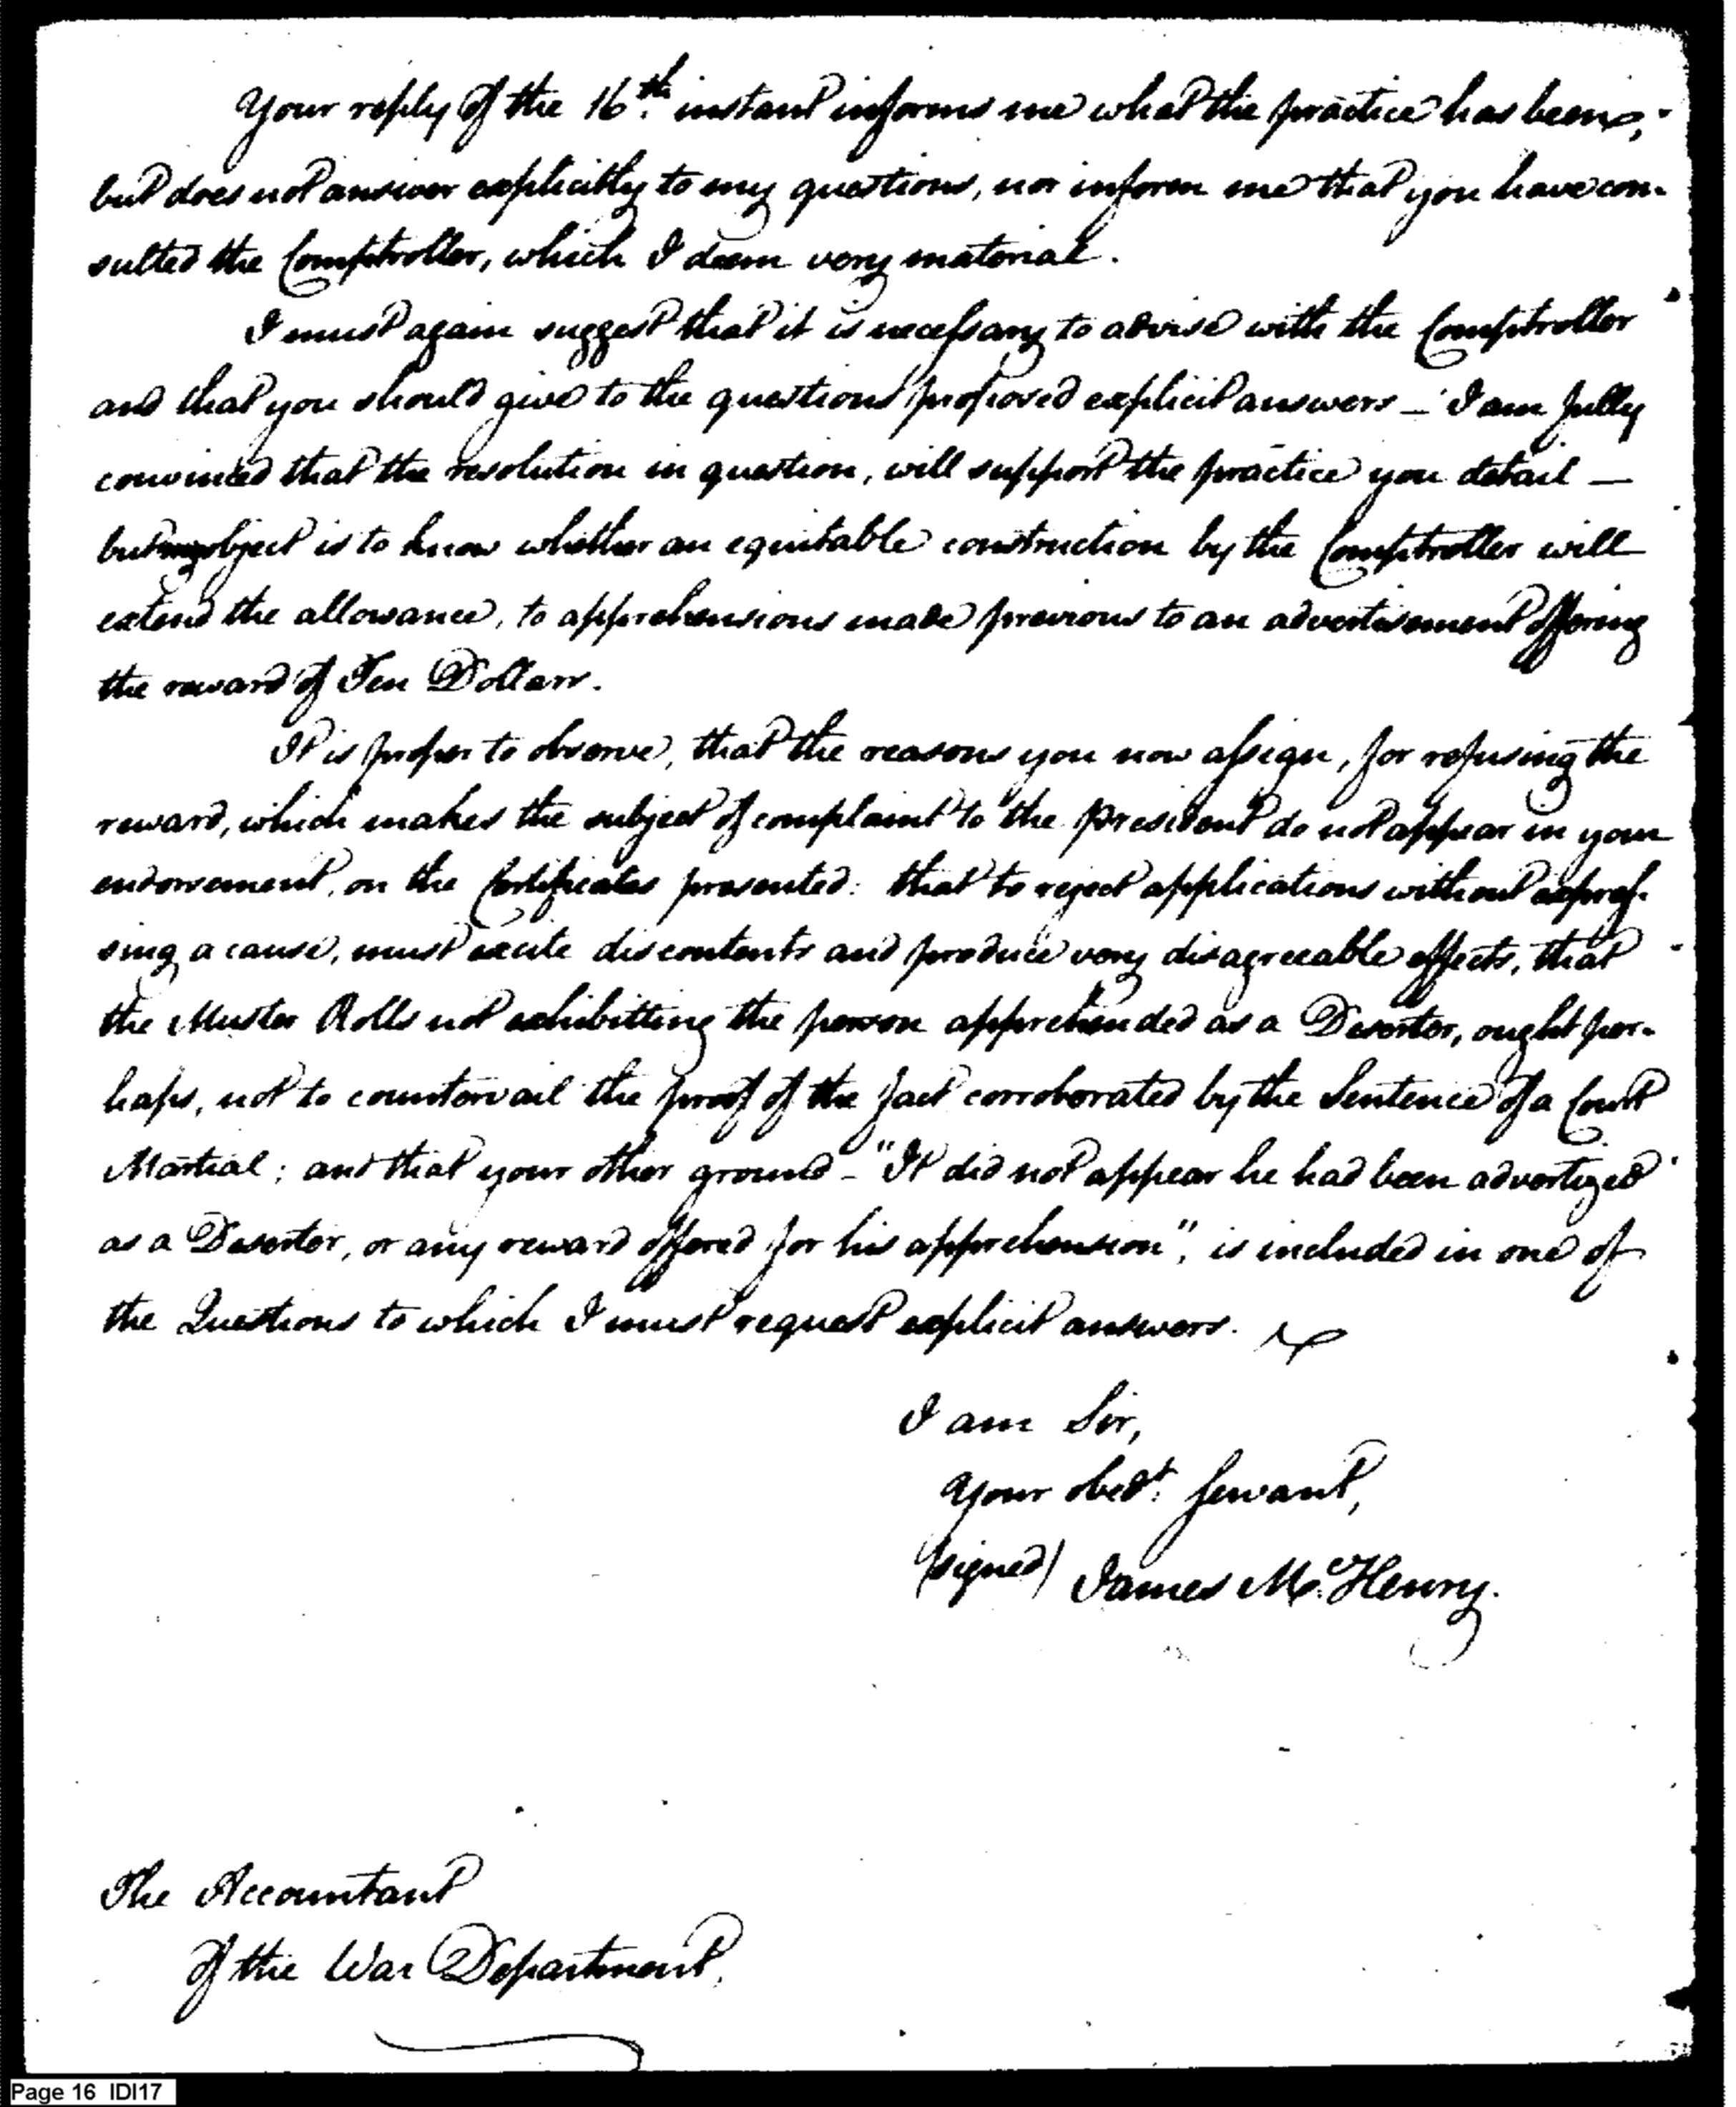 Your reply of the 16th. instant informs me what the practice has been;
but does not answer explicitly to my questions, nor inform me that you have con-
sulted the Comptroller, which I deem very material.
I must again suggest that it is necessary to advise with the Comptroller
and that you should give to the questions proposed explicit answers — I am fully
convinced that the resolution in question, will support the practice you detail —
but my object is to know whether an equitable construction by the Comptroller will
extend the allowance, to apprehensions made previous to an advertisement offering
the reward of Ten Dollars.
It is proper to observe, that the reasons you now assign, for refusing the
reward, which makes the subject of complaint to the President do not appear in your
endorsement, on the Certificates presented: that to reject applications without expres-
sing a cause, must excite discontents and produce very disagreeable effects, that
the Muster Rolls not exhibitting the person apprehended as a Deserter, ought per-
haps, not to countervail the proof of the fact corroborated by the Sentence of a Court
Martial; and that your other ground - "It did not appear he had been advertized
as a Deserter, or any reward offered for his apprehension", is included in one of
the Questions to which I must request explicit answers.
I am Sir,
Your obedt. Servant,
(signed) James McHenry.
The Accountant
of the War Department.
Page 16 IDI17